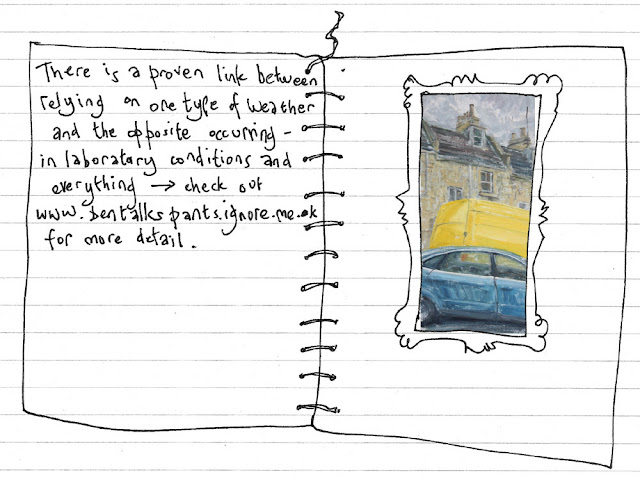 There is a proven link between
relying on one type of weather
and the opposite occurring -
in laboratary conditions and
everything → check out
www.bentalkspants.ignore.me.ok
for more detail.